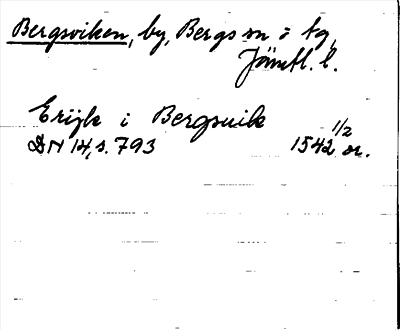 Bergsviken, by, Bergs sn o tg,
Jämtl. l.
Erijk i Bergsuik
DN 14, s. 793 1542 1/2 or.